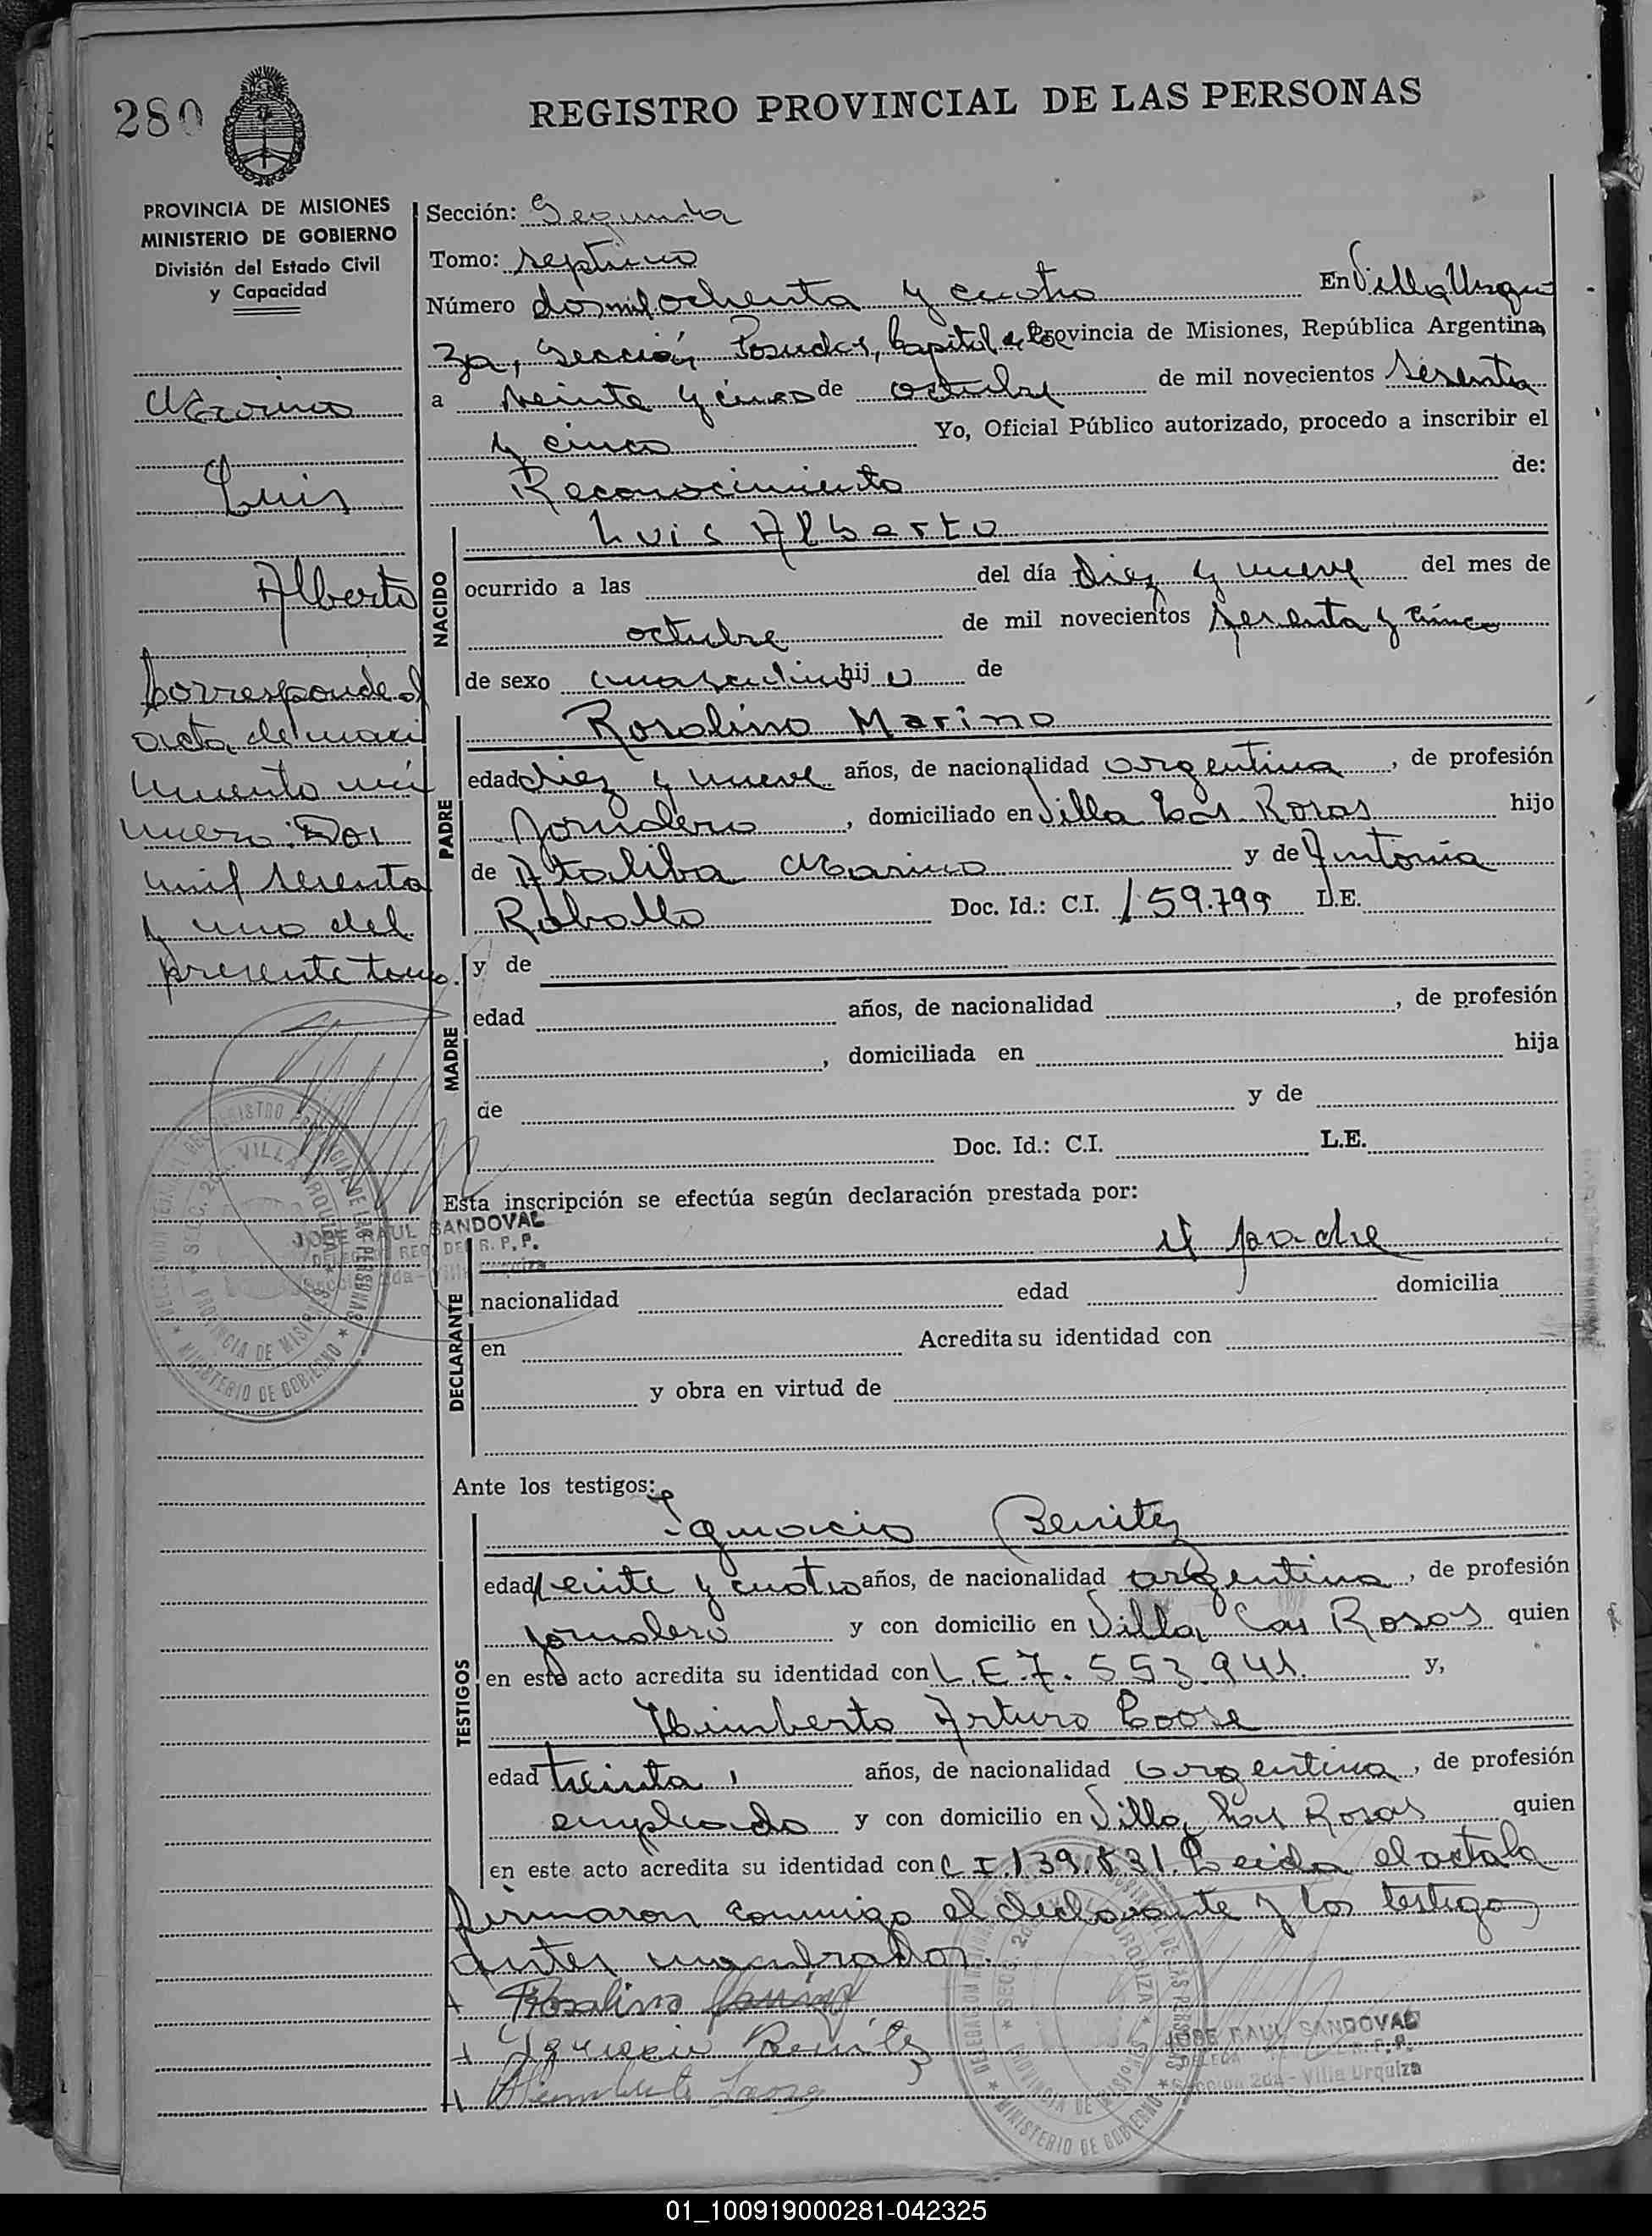 280
REGISTRO PROVINCIAL DE LAS PERSONAS
PROVINCIA DE MISIONES
MINISTERIO DE GOBIERNO
División del Estado Civil
y Capacidad
Marino
Luis
Alberto
Corresponde al
acta de naci
miento nú
mero: Dos
mil sesenta
y uno del
presente tomo.
Sección: Segunda
Tomo: septimo
Número dos mil ochenta y cuatro En Villa Urqui
za, Sección, Posadas, Capital de Provincia de Misiones, República Argentina,
a veinte y cinco de octubre de mil novecientos sesenta
y cinco Yo, Oficial Público autorizado, procedo a inscribir el
Reconocimiento de:
NACIDO
Luis Alberto
ocurrido a las del día diez y nueve del mes de
octubre de mil novecientos sesenta y cinco
de sexo masculino hij o de
PADRE
Rosalino Marino
edad diez y nueve años, de nacionalidad argentina, de profesión
Jornalero, domiciliado en Villa Las Rosas hijo
de Ataliba Marino y de Antonia
Rabollo Doc. Id.: C.I. 159.799 L.E.
MADRE
y de
edad años, de nacionalidad , de profesión
, domiciliada en hija
de y de
Doc. Id.: C.I. L.E.
Esta inscripción se efectúa según declaración prestada por:
JOSE RAUL SANDOVAL
DECLARANTE
el padre
nacionalidad edad domicilia
en Acredita su identidad con
y obra en virtud de
Ante los testigos:
TESTIGOS
Ignacio Benitez
edad veinte y cuatro años, de nacionalidad argentina, de profesión
jornalero y con domicilio en Villa Las Rosas quien
en este acto acredita su identidad con L.E 7.553.941. y,
Humberto Arturo Coose
edad treinta, años, de nacionalidad argentina, de profesión
empleado y con domicilio en Villa Las Rosas quien
en este acto acredita su identidad con C I 139.831. Leida el acta la
firmaron conmigo el declarante y los testigos
antes nombrados.
Rosalino Marino
Ignacio Benitez
Humberto
JOSE RAUL SANDOVAL
Sección 2da - Villa Urquiza
01_100919000281-042325